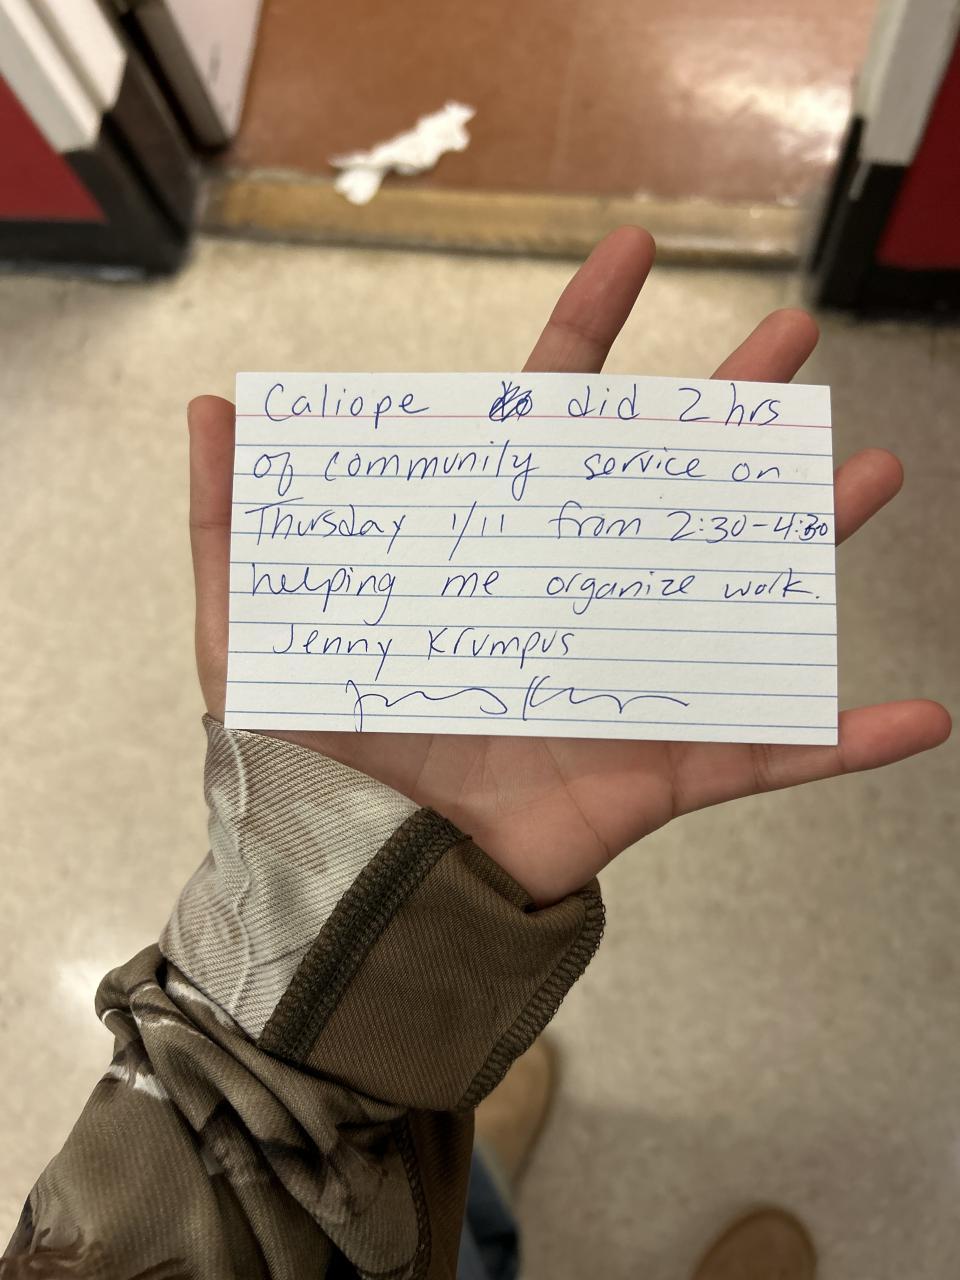 Caliope did 2 hrs
of community service on
Thursday 1/11 from 2:30-4:30
helping me organize work.
Jenny Krumpus